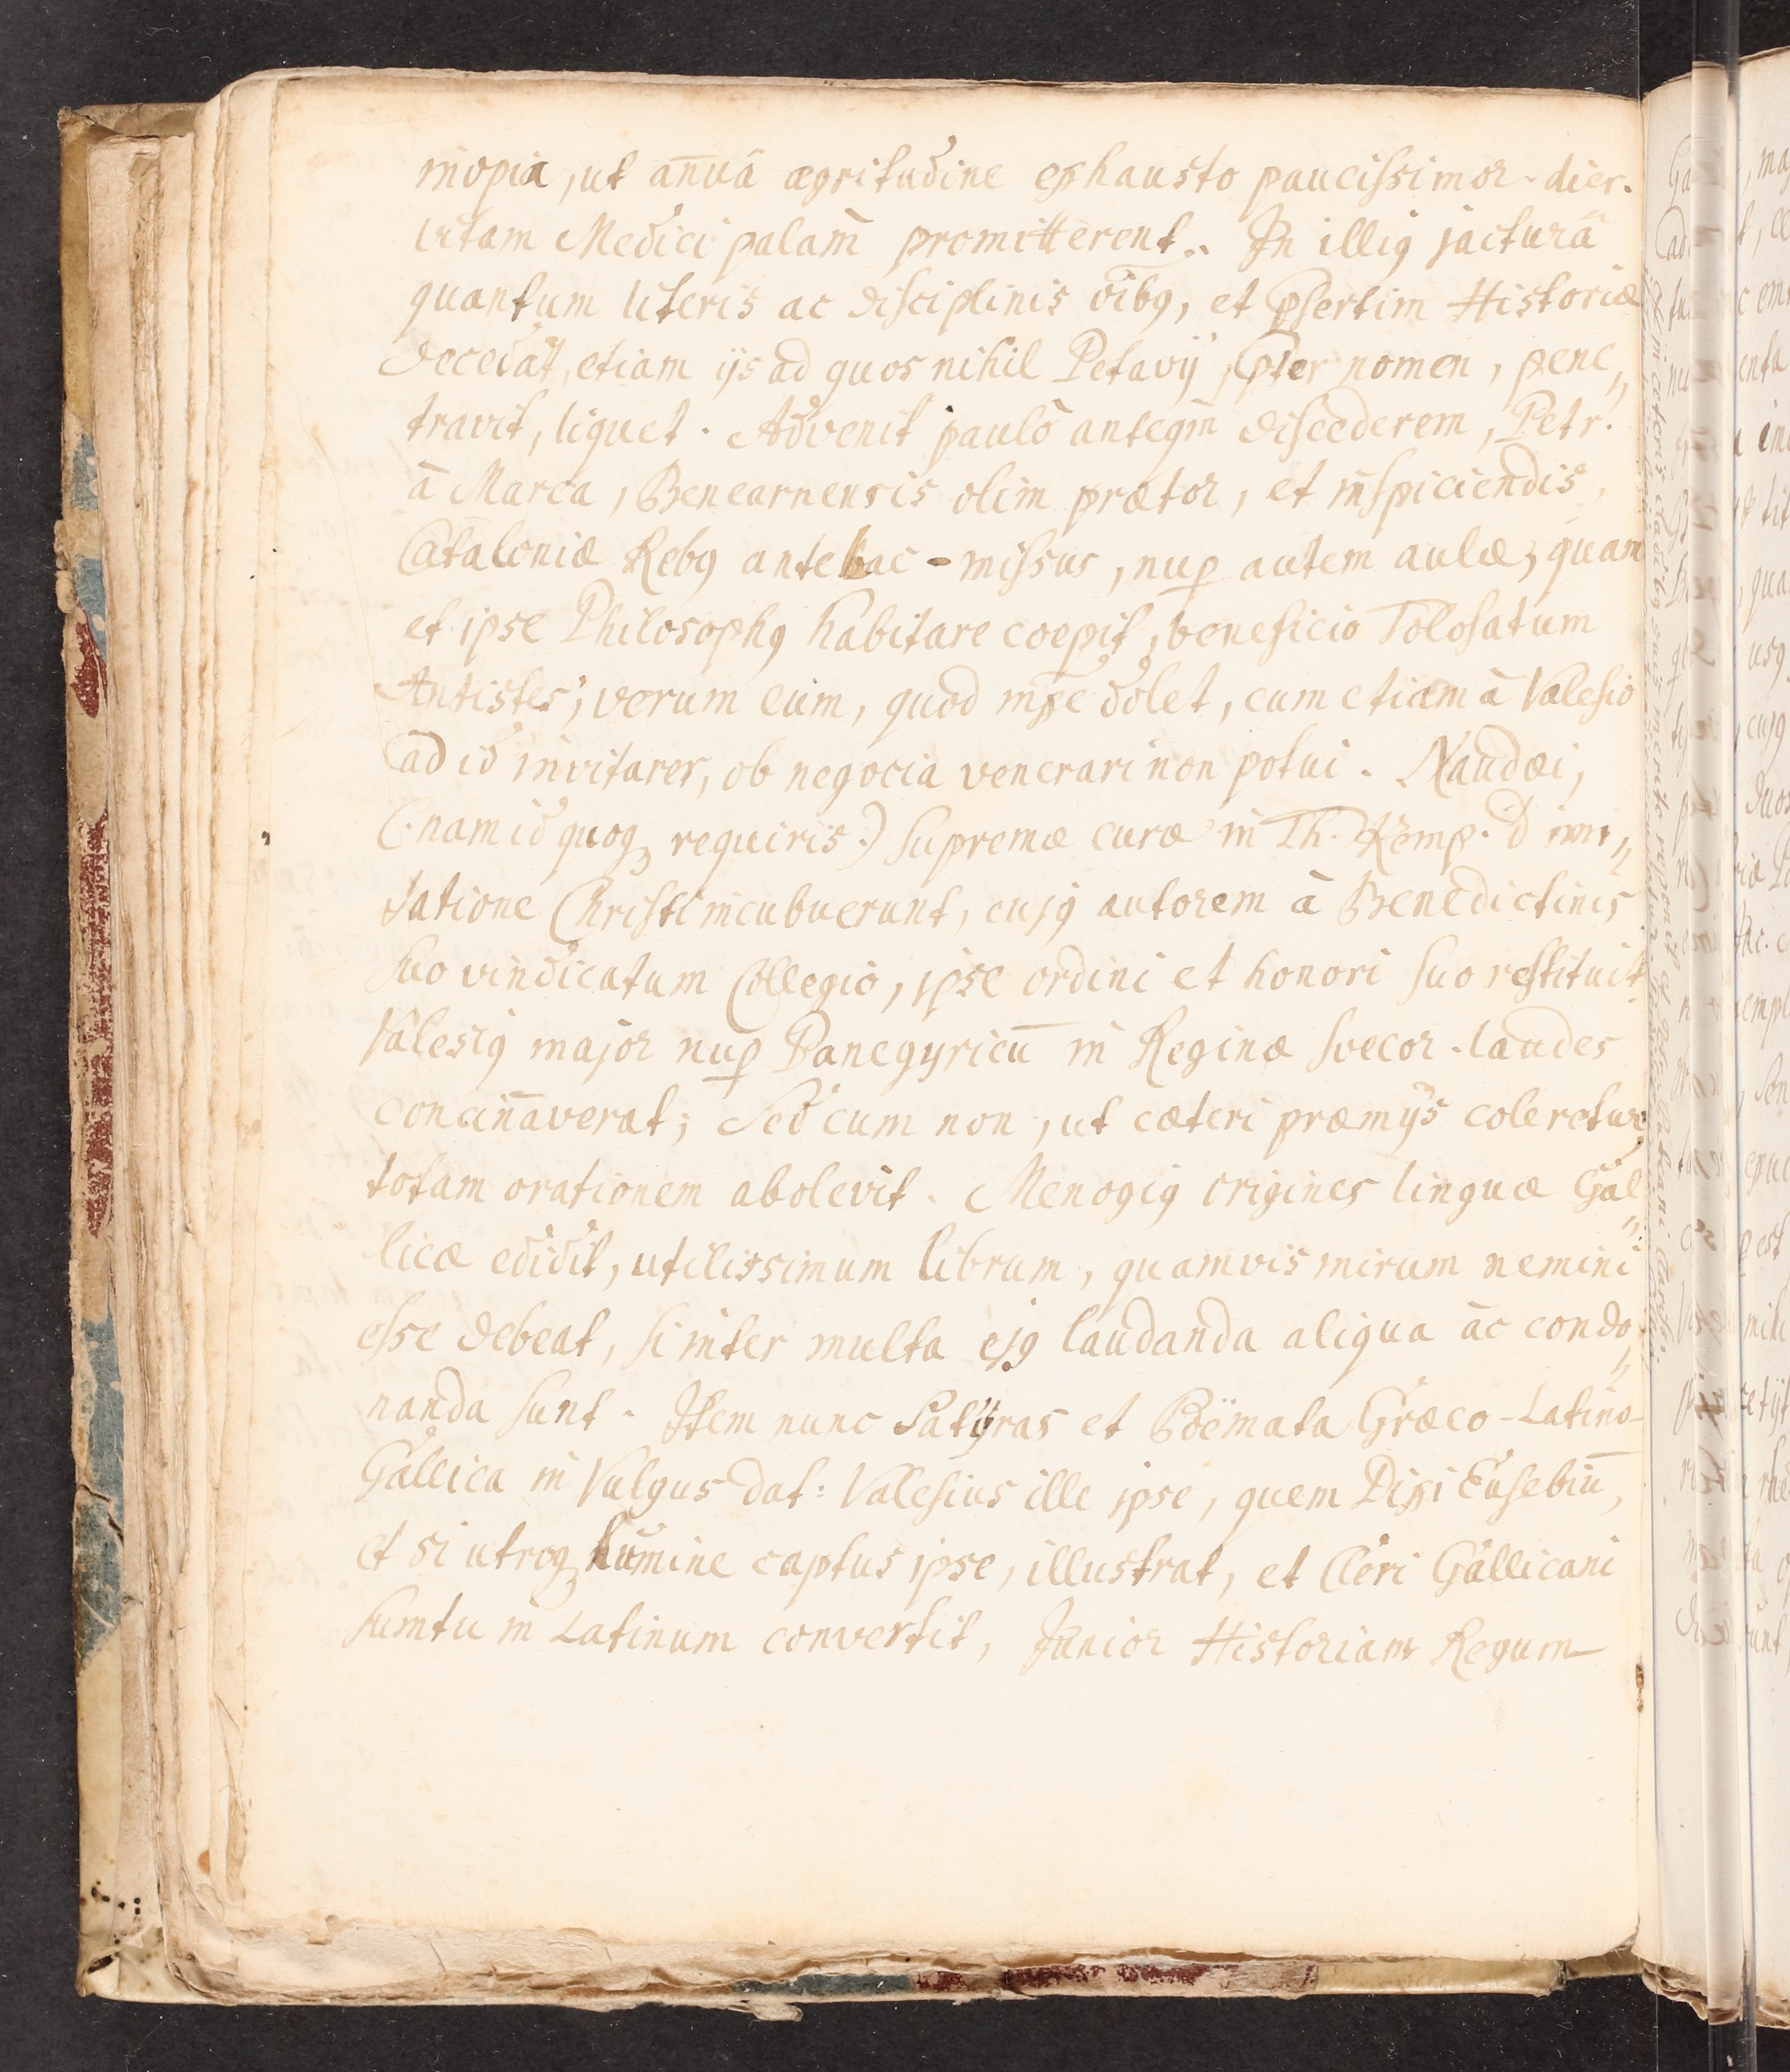 inopia, ut an̄uâ ægritudine exhausto paucissimor. dier.
vitam Medici palam̄ promitterent. In illiꝰ jacturâ
quantum literis ac disciplinis oībꝰ, et p̄sertim Historiæ
decedat, etiam ijs ad quos nihil Petavij p̄ter nomen, pene⸗
travit, liquet. Advenit paulò anteqm̄ discederem, Petr.
à Marca, Benearnensis olim prætor, et inspiciendis,
Cataloniæ Rebꝰ antehac-missus, nuꝑ autem aulæ, quam
et ipse Philosophꝰ habitare coepit, beneficio Tolosatum
Antistes; verum eum, quod mꝑe dolet, cum etiam à Valesio
ad id invitarer, ob negocia venerari non potui. Naudæi,
(nam id quoqꝫ requiris.) supremæ curæ in Th. Kemp. d imi⸗
tatione Christi incubuerunt, cujꝰ autorem à Benedictinis
suo vindicatum Collegio, ipse ordini et honori suo restituit
Valesiꝰ major nuꝑ Panegyricū in Reginæ Svecor. laudes
concin̄averat; Sed cum non, ut cæteri præmijs coleretur
totam orationem abolevit. Menogiꝰ origines linguæ Gal⸗
licæ edidit, utilissimum librum, quamvis mirum nemini
esse debeat, si inter multa ejꝰ laudanda aliqua ac condo⸗
nanda sunt. Item nunc Satÿras et Poëmata Græco-Latino-
Gallica in Vulgus dat: Valesius ille ipse, quem Dixi Eusebiū,
et si utroqꝫ lumine captus ipse, illustrat, et Cleri Gallicani
sumtu in Latinum convertit, Junior Historiam Regum